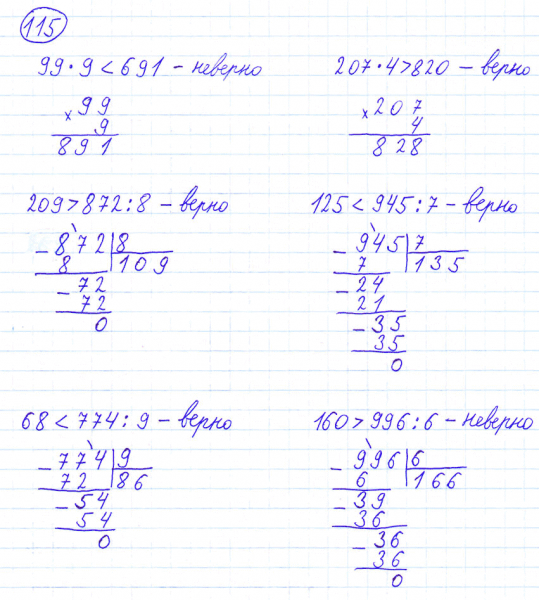 115
99·9<691 – неверно
207·4>820 – верно
×99
9
891
×207
4
828
209>872:8 – верно
125<945:7 – верно
–872|8
8 109
–72
72
0
–945|7
7 135
–24
21
–35
35
0
68<774:9 – верно
160>996:6 – неверно
–774|9
72 86
–54
54
0
–996|6
6 166
–39
36
–36
36
0